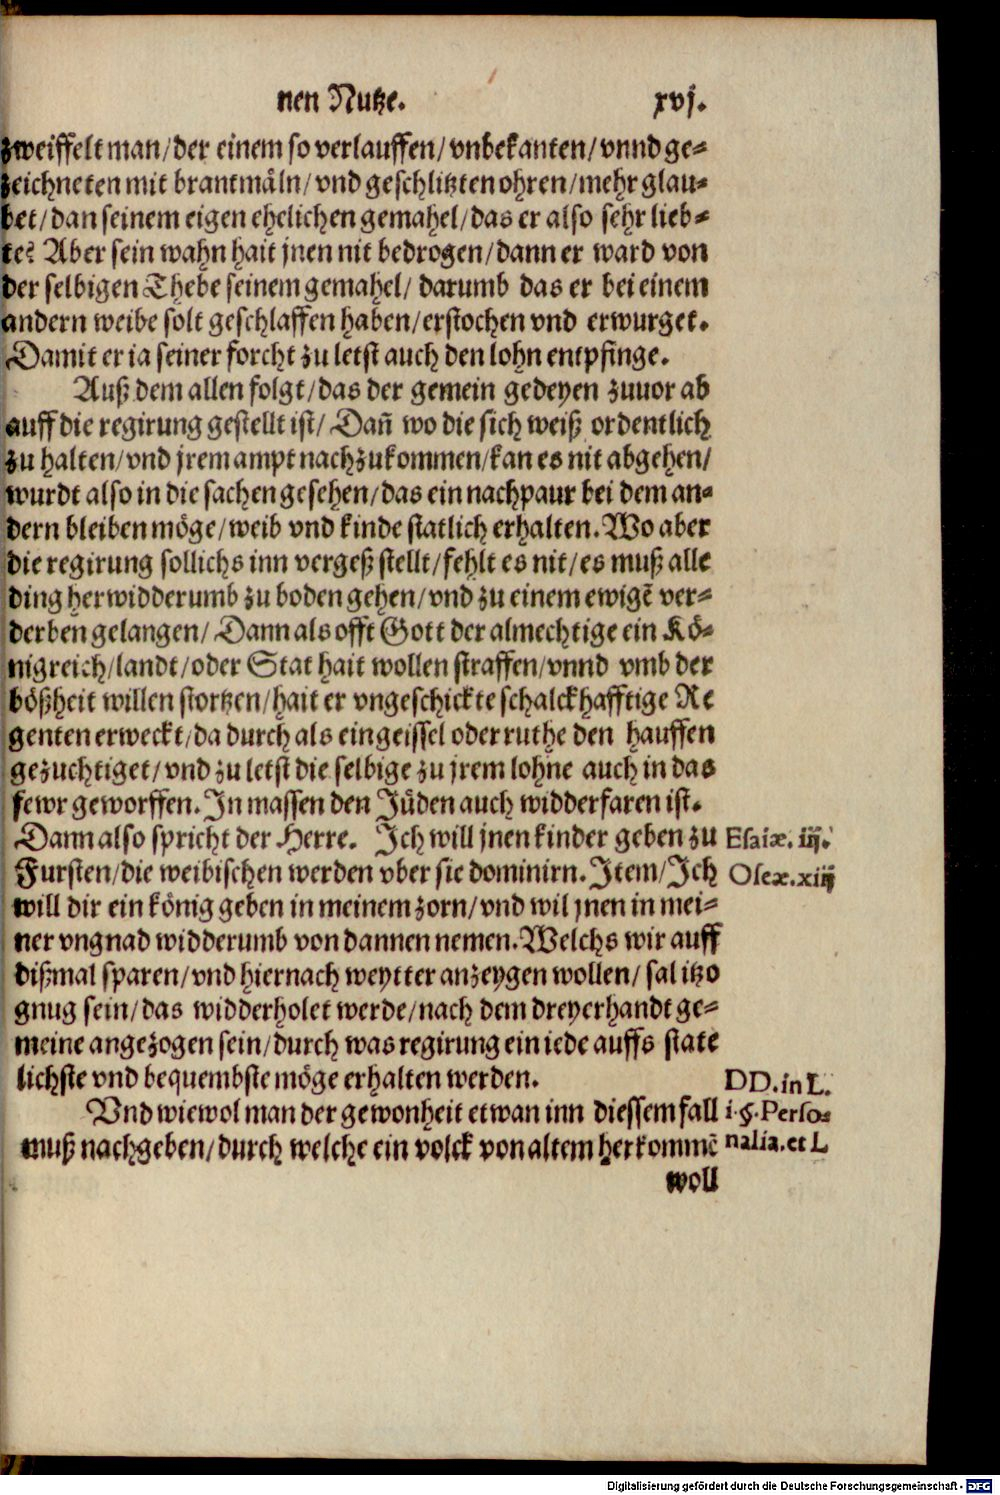 nen Nutze. xvj.
zweiffelt man/der einem so verlauffen/vnbekanten/vnnd ge⸗
zeichneten mit brantmäln/vnd geschlitzten ohren/mehr glau⸗
bet/dan seinem eigen ehelichen gemahel/das er also sehr lieb⸗
te? Aber sein wahn hait jnen nit bedrogen/dann er ward von
der selbigen Thebe seinem gemahel/ darumb das er bei einem
andern weibe solt geschlaffen haben/erstochen vnd erwurget.
Damit er ia seiner forcht zu letst auch den lohn entpfinge.
Auß dem allen folgt/das der gemein gedeyen zuuor ab
auff die regirung gestellt ist/ Dañ wo die sich weiß ordentlich
zu halten/vnd jrem ampt nachzukommen/kan es nit abgehen/
wurdt also in die sachen gesehen/das ein nachpaur bei dem an⸗
dern bleiben möge/weib vnd kinde statlich erhalten. Wo aber
die regirung sollichs inn vergeß stellt/fehlt es nit/es muß alle
ding herwidderumb zu boden gehen/vnd zu einem ewigẽ ver⸗
derben gelangen/ Dann als offt Gott der almechtige ein Kö⸗
nigreich/landt/oder Stat hait wollen straffen/vnnd vmb der
bößheit willen stortzen/hait er vngeschickte schalckhafftige Re
genten erweckt/da durch als ein geissel oder ruthe den hauffen
gezuchtiget/vnd zu letst die selbige zu jrem lohne auch in das
fewr geworffen. In massen den Jüden auch widderfaren ist.
Dann also spricht der Herre. Ich will jnen kinder geben zu
Esaiæ. iij.
Fursten/die weibischen werden vber sie dominirn. Item/Ich
Oseæ. xiij
will dir ein könig geben in meinem zorn/vnd wil jnen in mei⸗
ner vngnad widderumb von dannen nemen. Welchs wir auff
dißmal sparen/vnd hiernach weytter anzeygen wollen/ sal itzo
gnug sein/das widderholet werde/nach dem dreyerhandt ge⸗
meine angezogen sein/durch was regirung ein iede auffs state
lichste vnd bequembste möge erhalten werden.
DD. in L.
Vnd wiewol man der gewonheit etwan inn diessem fall
i. §. Perso⸗
muß nachgeben/durch welche ein volck von altem herkommẽ
nalia. et L
woll
Digitalisierung gefördert durch die Deutsche Forschungsgemeinschaft - DFG